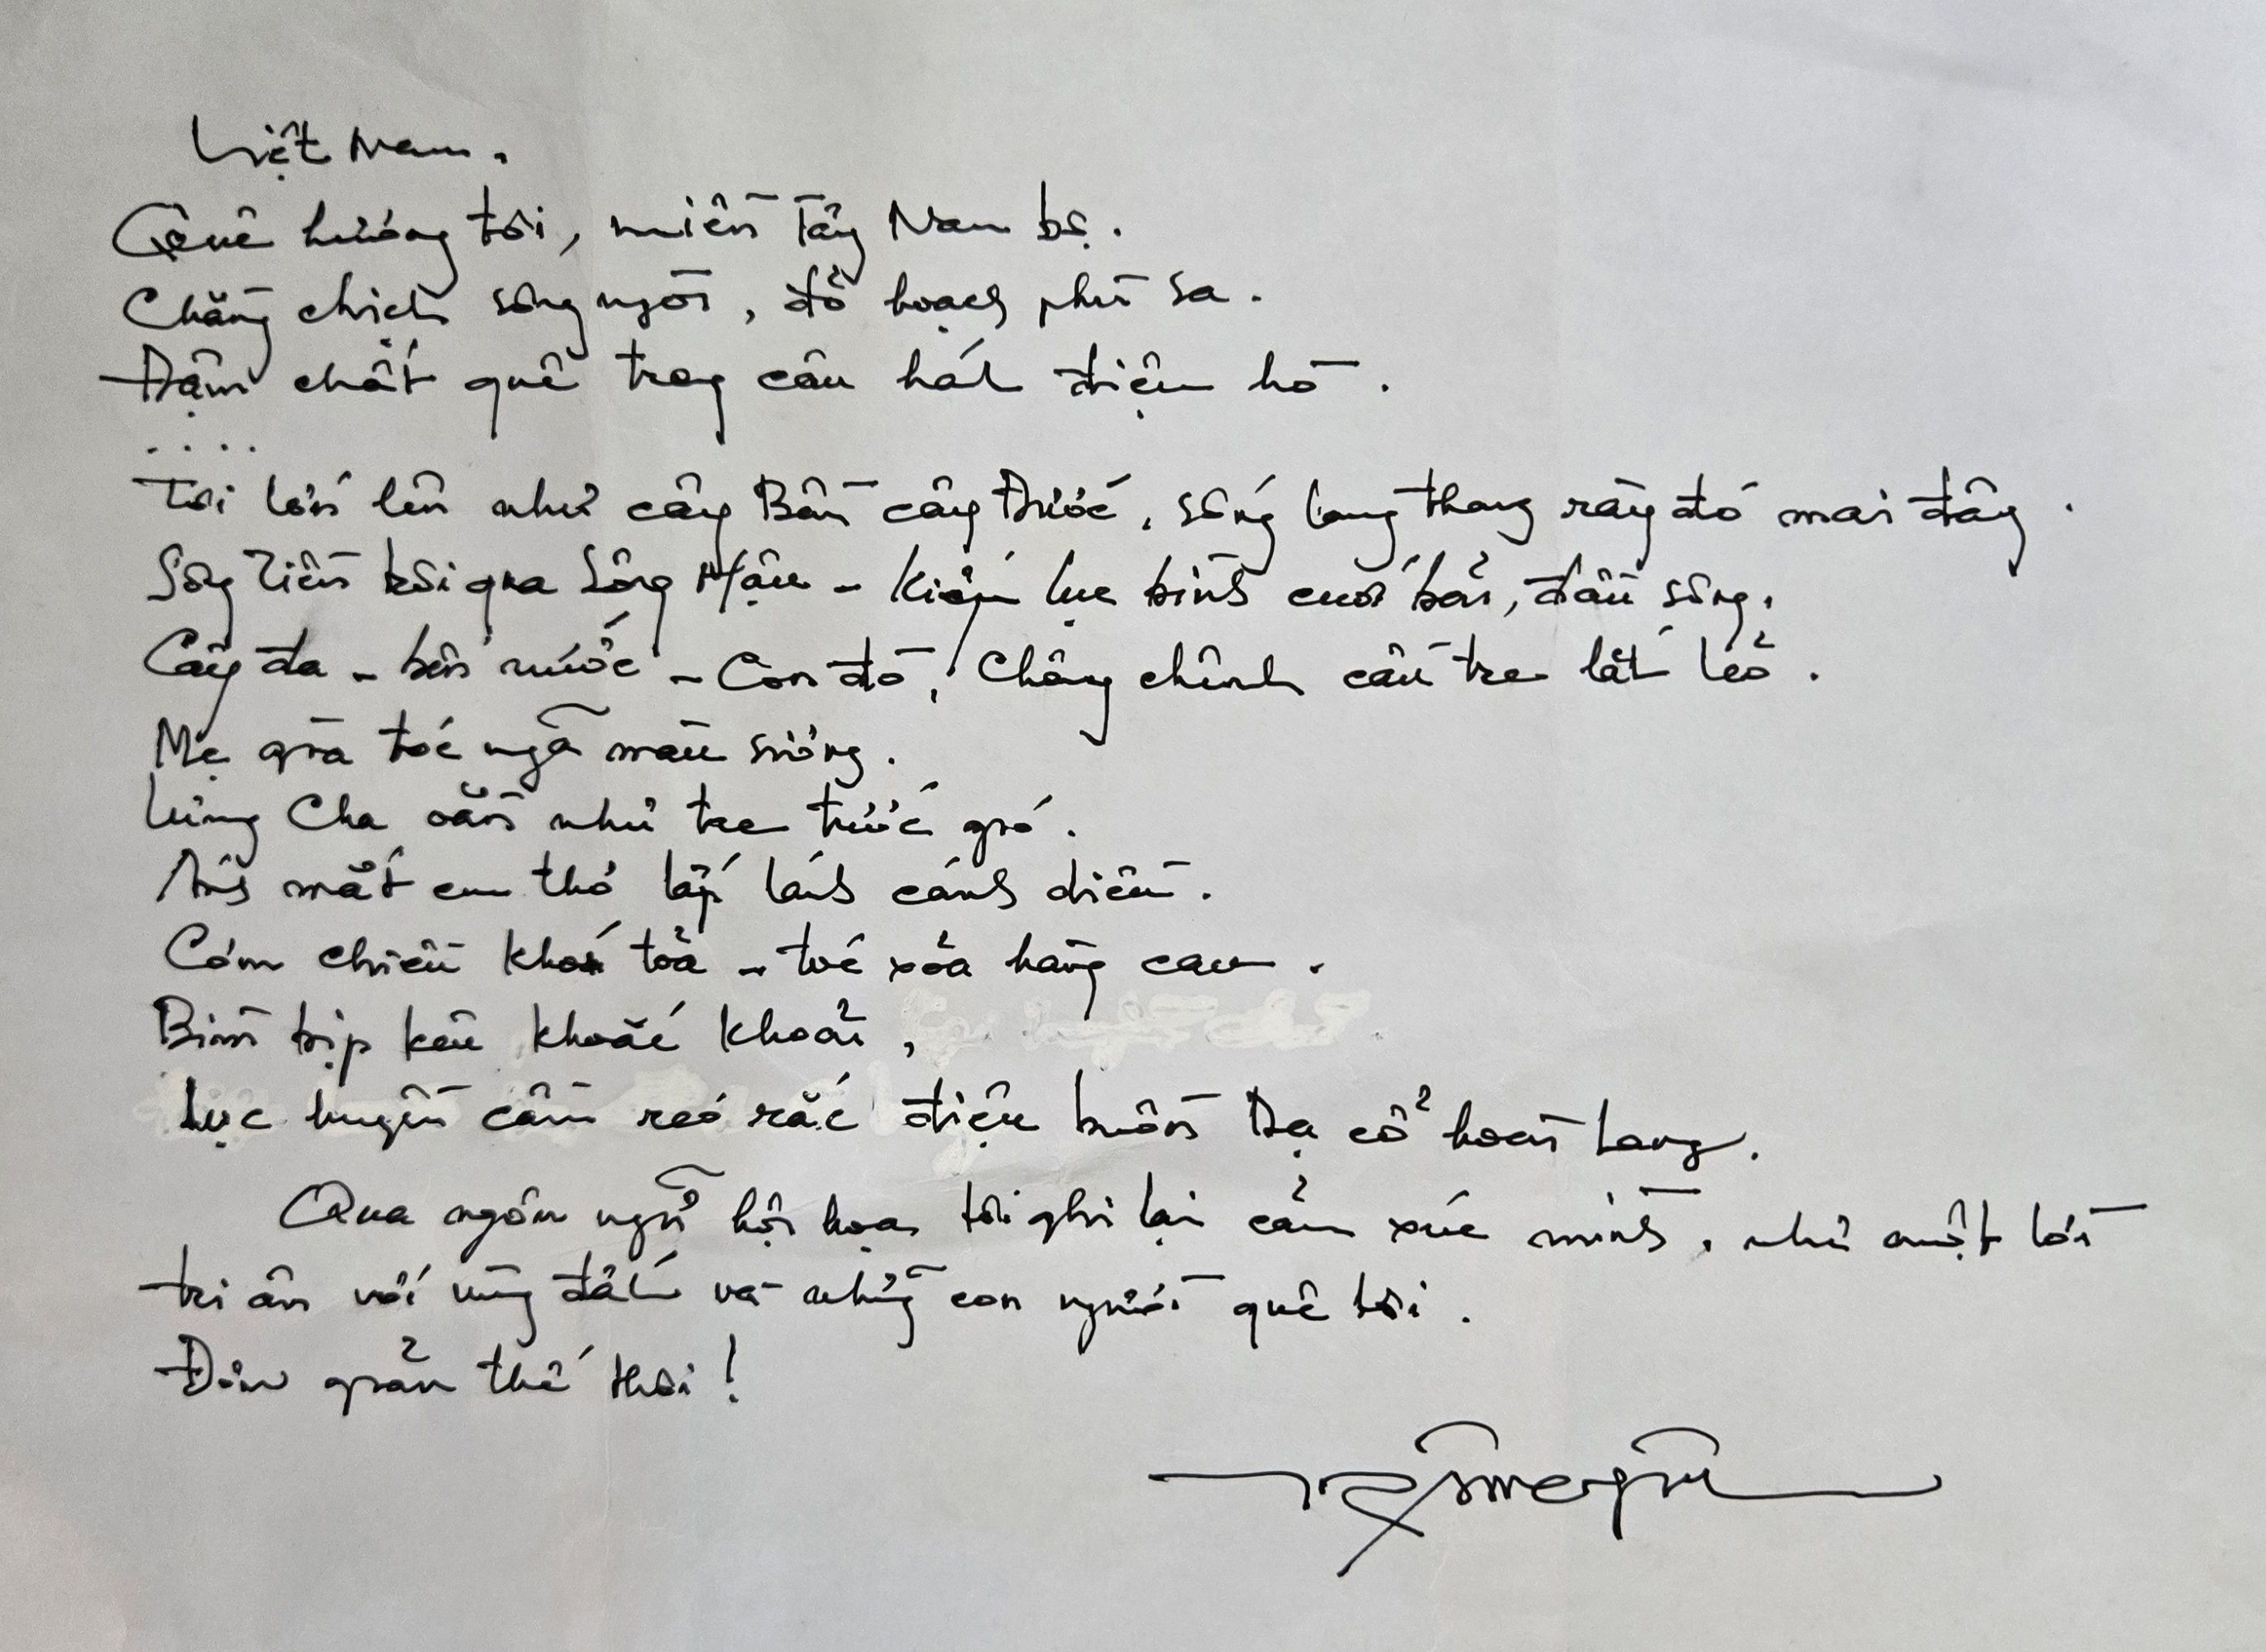 Việt Nam.
Quê hương tôi, miền Tây Nam bộ.
Chằng chịch sông ngòi, đỏ hoạch phù sa.
Đậm chất quê trong câu hát điệu hò.
....
Tôi lớn lên như cây Bần cây Đước, sống lang thang rày đó mai đây.
Sông Tiền trôi qua Sông Hậu - Kiếp lục bình cuối bãi, đầu sông.
Cây đa - bến nước - Con đò, Chông chênh cầu tre lắt lẻo.
Mẹ già tóc ngã màu sương.
Lưng Cha oằn như tre trước gió.
Ánh mắt em thơ lấp lánh cánh diều.
Cơm chiều khói tỏa - tóc xỏa hàng cau.
Bìm bịp kêu khoắc khoải,
Lục huyền cầm réo rắc điệu buồn Dạ cổ hoài Lang.
Qua ngôn ngữ hội họa tôi ghi lại cảm xúc mình, như một lời
tri ân với vùng đất và những con người quê tôi.
Đơn giản thế thôi!